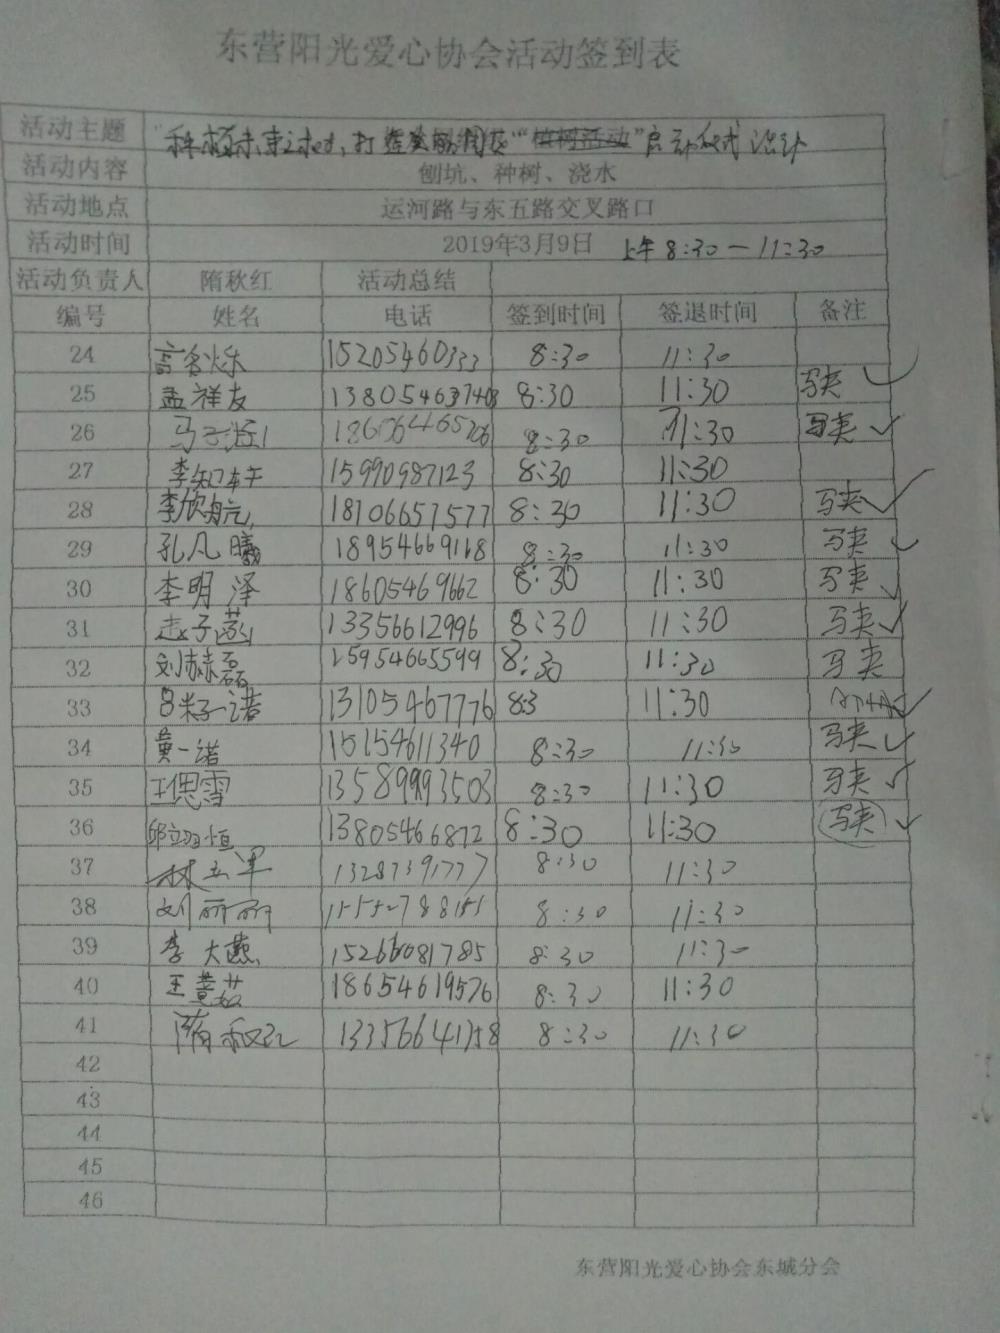 东营阳光爱心协会活动签到表
活动主题 启动仪式活动
活动内容 刨坑、种树、浇水
活动地点 运河路与东五路交叉路口
活动时间 2019年3月9日 上午8:30—11:30
活动负责人 隋秋红 活动总结
编号 姓名 电话 签到时间 签退时间 备注
24 15205460333 8:30 11:30
25 孟祥友 13805463740 8:30 11:30 马夹
26 8:30 11:30 马夹
27 15990987123 8:30 11:30
28 李欣航 18106657577 8:30 11:30 马夹
29 孔凡曦 18954669168 8:30 11:30 马夹
30 李明泽 18605469662 8:30 11:30 马夹
31 13356612996 8:30 11:30 马夹
32 刘赫磊 15954665599 8:30 11:30 马夹
33 13105467776 8:3 11:30
34 黄一诺 15154611340 8:30 11:30 马夹
35 王偲雪 8:30 11:30 马夹
36 邱立羽恒 13805466872 8:30 11:30 马夹
37 13287391777 8:30 11:30
38 刘丽丽 8:30 11:30
39 李大燕 15266081785 8:30 11:30
40 18654619576 8:30 11:30
41 隋秋红 8:30 11:30
42
43
44
45
46
东营阳光爱心协会东城分会